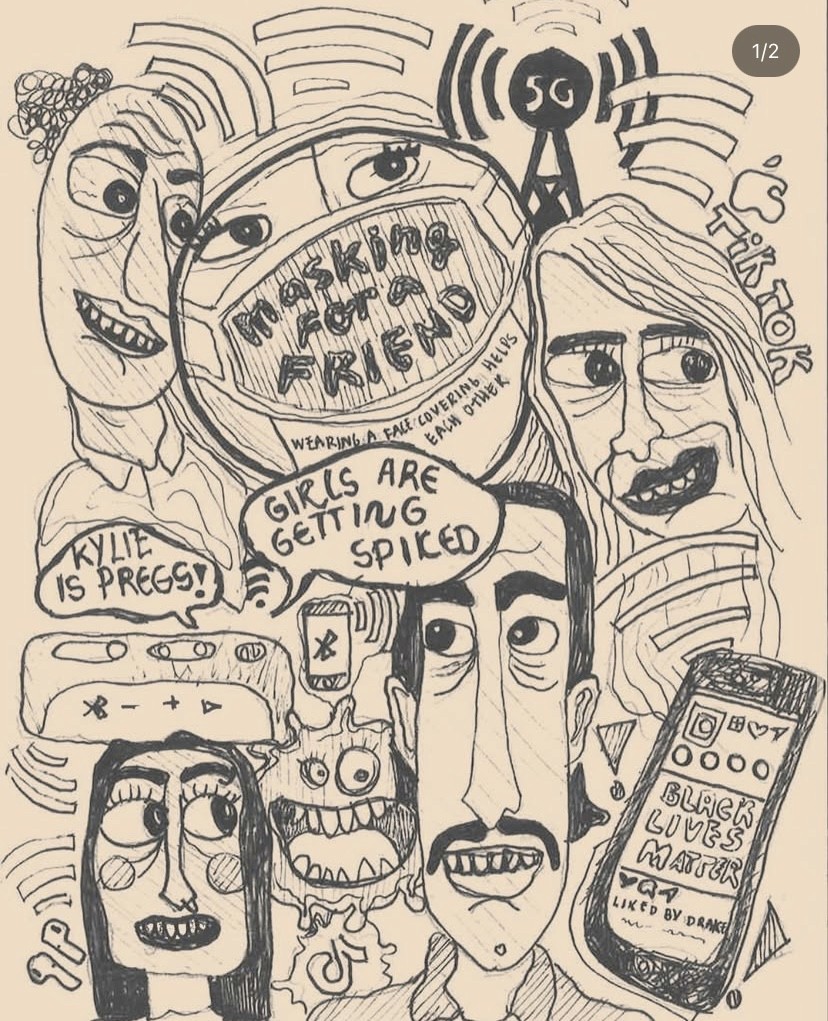 1/2
5G
TikTOK
masking
for a
FRIEND
WEARING A FACE COVERING HELPS
EACH OTHER
GIRLS ARE
GETTING
SPIKED
KYLIE
IS PREGS!
- +
BLACK
LIVES
MATTER
LIKED BY DRAKE